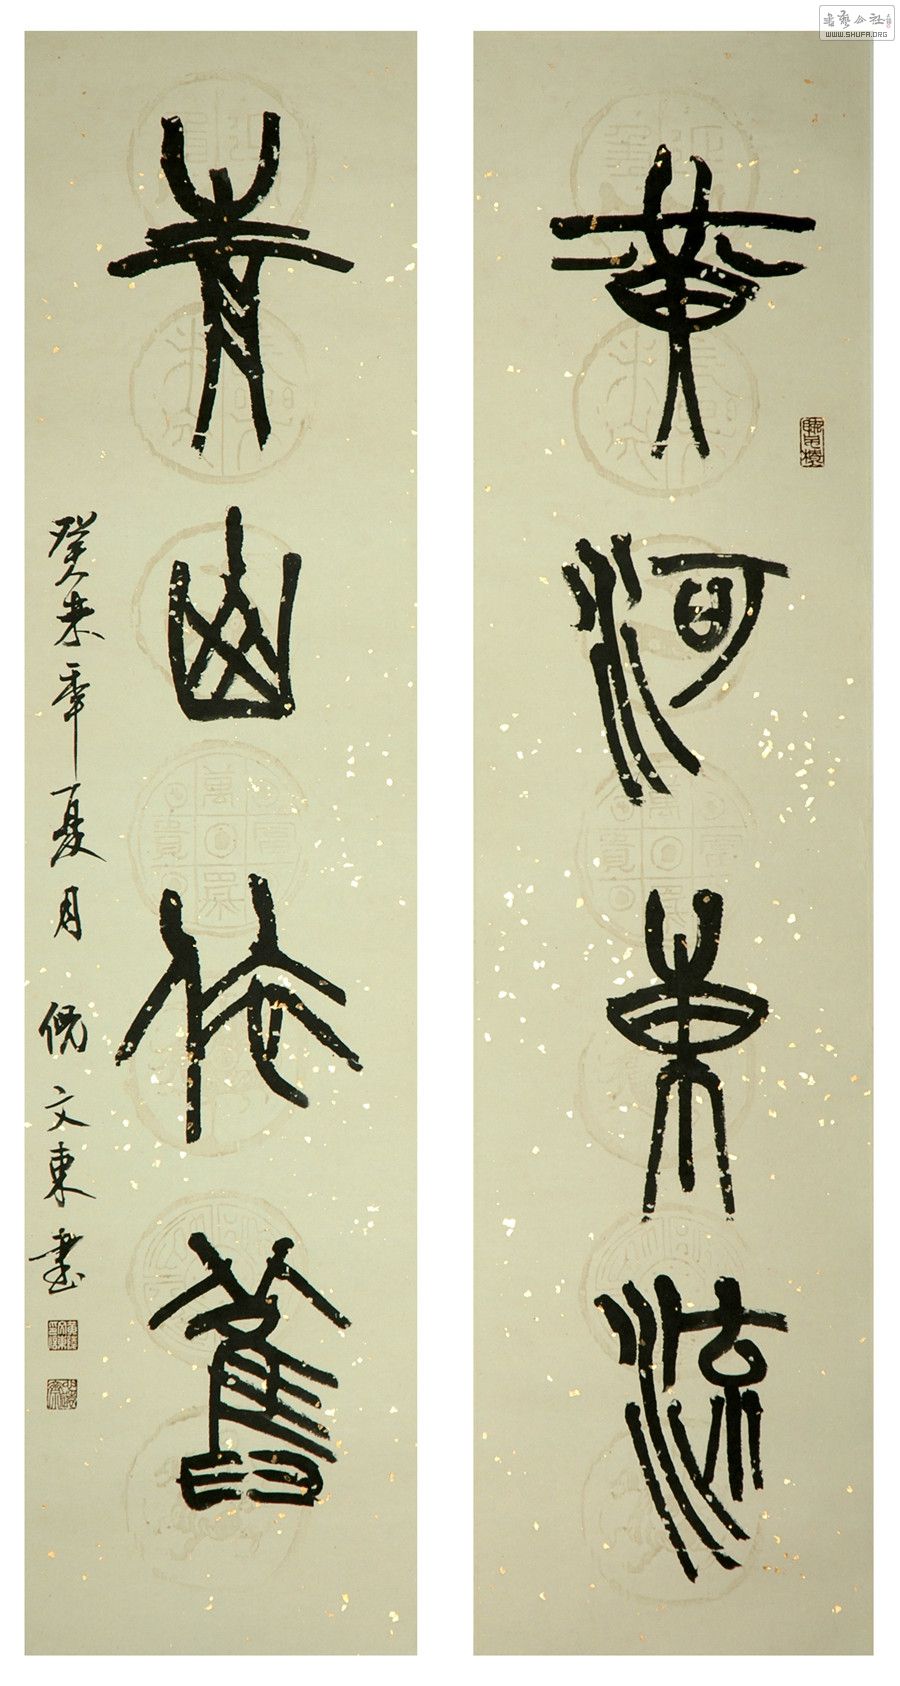 黃河東流
青山依舊
癸未年夏月倪文東書
書藝公社
WWW.SHUFA.ORG